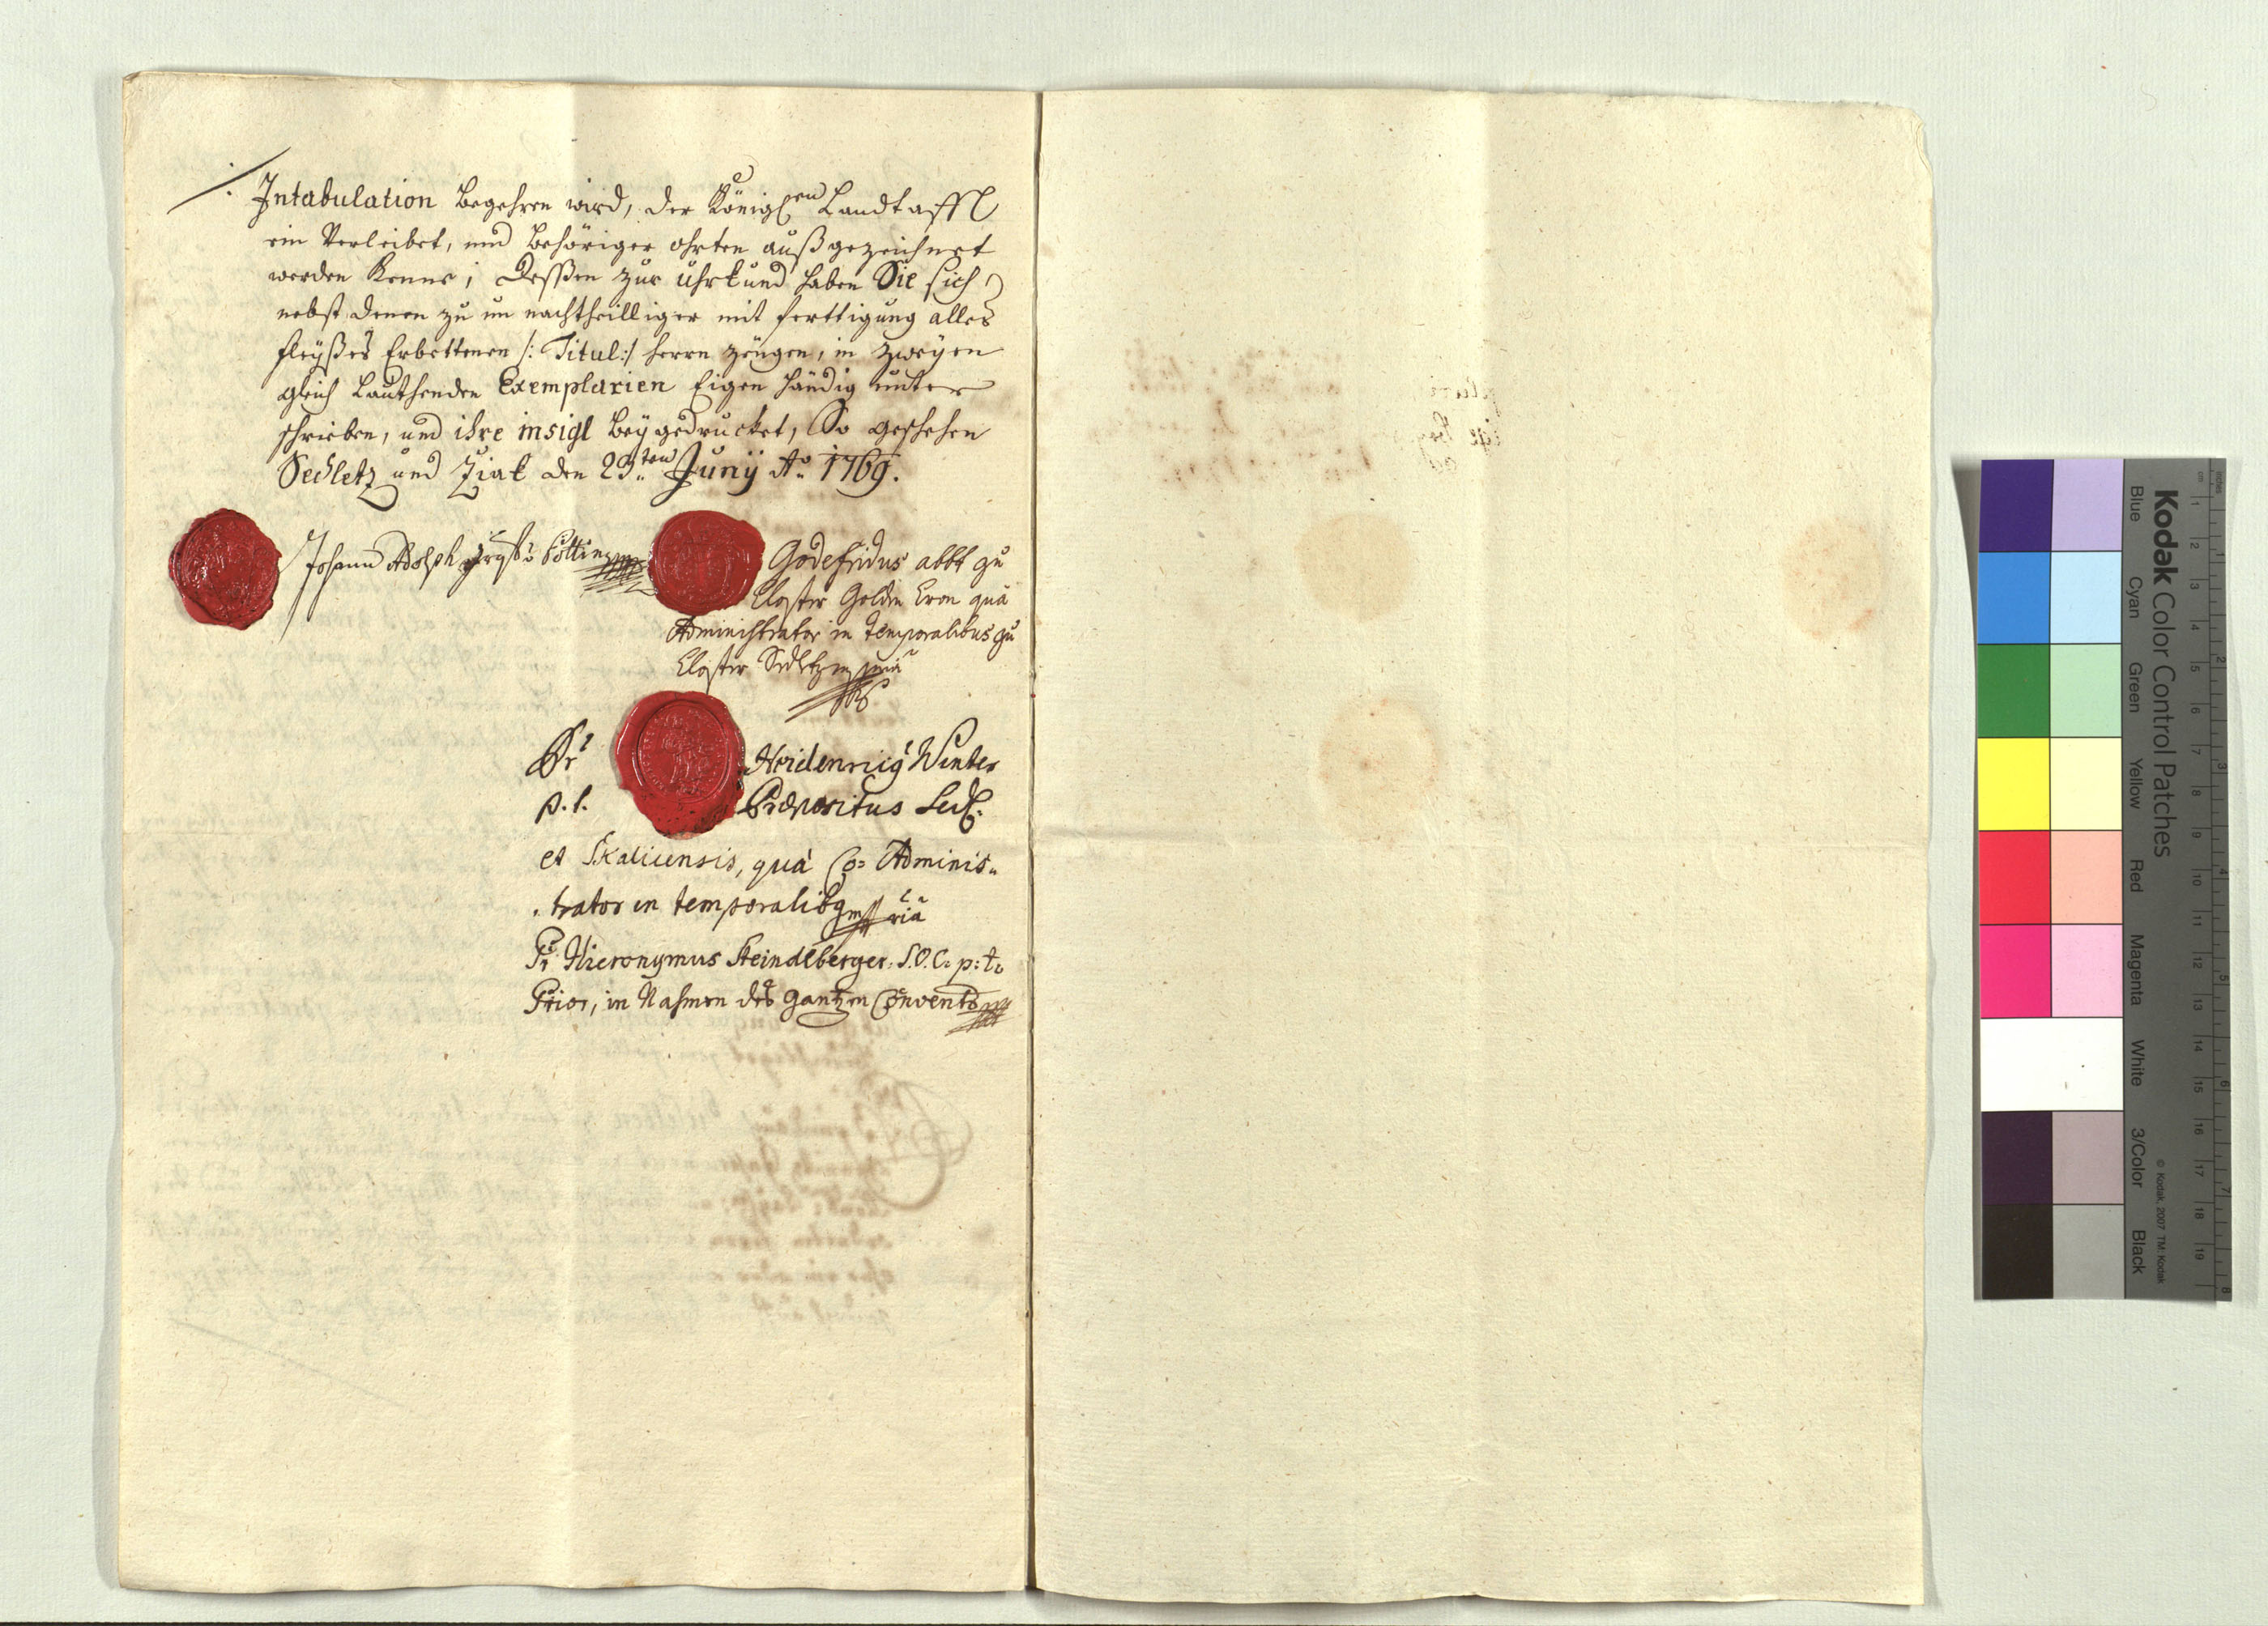 Intabulation begehren wird, der Königlen Landtaffl
ein Verleibet, und behöriger ohrten außgezeichnet
werden kenne; Dessen zur uhrkund haben Sie sich
nebst denen zu un nachtheilliger mit ferttigung alles
fleyßes Erbettenen /: Titul:/ herrn zeugen, in zweyen
gleich lauthenden Exemplarien Eigen händig unter
schrieben, und ihre insigl beygedrucket, So geschehen
Sedletz und Ziak den 29ten Junÿ Ao 1769.
Johann Adolph Pöttin
Godefridus abbt zu
Closter Golden Cron quà
Administrator in temporalibus zu
Closter Sedletz mpria
Fr Heidenricg Winter
p.t. Præpositus Sedl:
et Skalicensis, quà Co= Adminis=
trator in temporalibg mppria
Pr Hieronymus Steindlberger. S.O.C. p:t:
Prior, in Nahmen des gantzen Convents
Kodak Color Control Patches
Blue Cyan Green Yellow Red Magenta White 3/Color Black
© Kodak, 2007 TM: Kodak
inches 1 2 3 4 5 6 7 8
cm 1 2 3 4 5 6 7 8 9 10 11 12 13 14 15 16 17 18 19